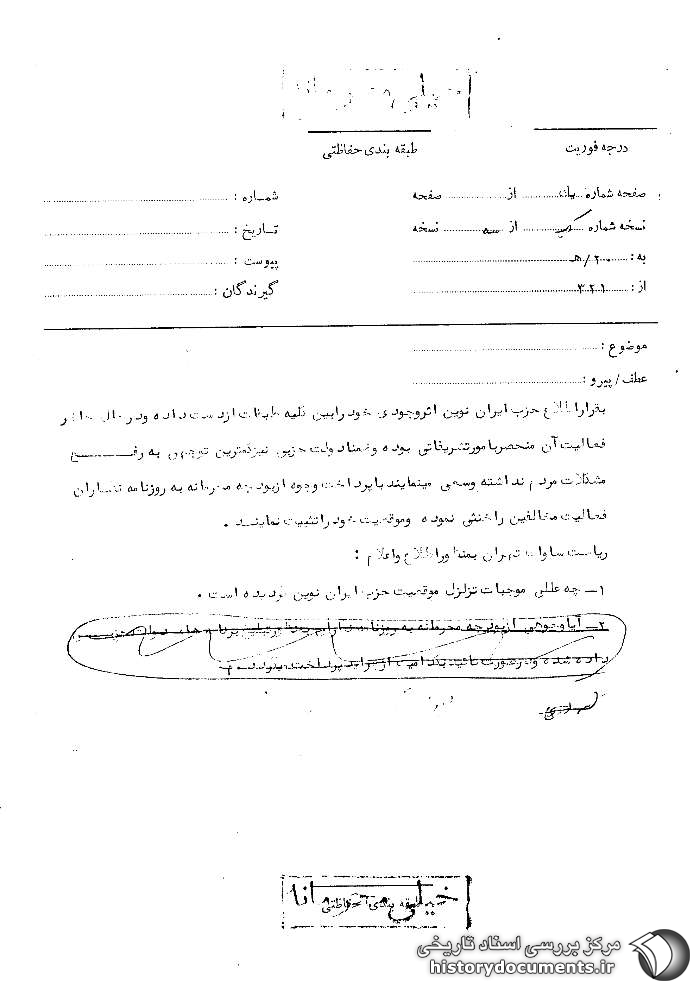 خیلی محرمانه
درجه فوریت
طبقه بندی حفاظتی
صفحه شماره ... از ... صفحه
شماره :
نسخه شماره یک از سه نسخه
تاریخ :
به : ۲۰ / هـ
پیوست :
از : ۳۲۱
گیرندگان :
موضوع :
عطف / پیرو :
بقراراطلاع حزب ایران نوین اثروجودی خودرابین کلیه طبقات ازدست داده ودرحال حاضر
فعالیت آن منحصربامورتشریفاتی بوده وضمنا دولت حزبی نیزکمترین توجهی به رفـــع
مشکلات مردم نداشته وسعی مینمایند باپرداخت وجوه ازبودجه محرمانه به روزنامه نگاران
فعالیت مخالفین راخنثی نموده وموقعیت خودراتثبیت نمایند .
ریاست ساواک تهران بمنظوراطلاع واعلام :
۱ــ چه عللی موجبات تزلزل موقعیت حزب ایران نوین گردیده است .
۲ــ آیاوجوهی ازبودجه محرمانه به روزنامه نگاران برنامه های دولت حزبی
داده شده ودرصورت تائید بکدامیک ازجراید پرداخت میگردد . م
خیلی محرمانه
طبقه بندی حفاظتی
مرکز بررسی اسناد تاریخی
historydocuments.ir